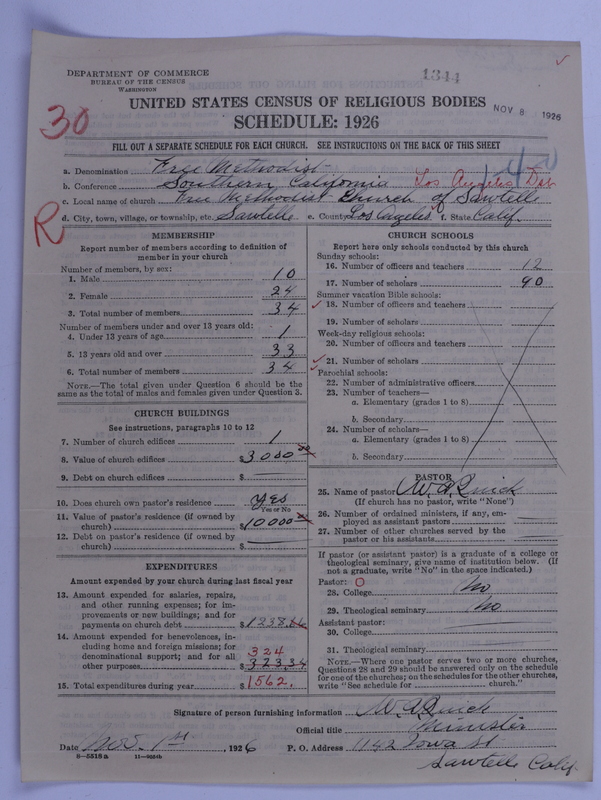 1344
DEPARTMENT OF COMMERCE
BUREAU OF THE CENSUS
WASHINGTON
NOV 8 1926
30
UNITED STATES CENSUS OF RELIGIOUS BODIES
SCHEDULE: 1926
FILL OUT A SEPARATE SCHEDULE FOR EACH CHURCH. SEE INSTRUCTIONS ON THE BACK OF THIS SHEET
a. Denomination Free Methodist
b. Conference Southern California Los Angeles Dist
c. Local name of church Free Methodist Church of Sawtelle
d. City, town, village, or township, etc. Sawtelle e. County Los Angeles f. State Calif.
R
MEMBERSHIP
Report number of members according to definition of
member in your church
Number of members, by sex:
1. Male 10
2. Female 24
3. Total number of members 34
Number of members under and over 13 years old:
4. Under 13 years of age 1
5. 13 years old and over 33
6. Total number of members 34
NOTE.—The total given under Question 6 should be the
same as the total of males and females given under Question 3.
CHURCH BUILDINGS
See instructions, paragraphs 10 to 12
7. Number of church edifices 1
8. Value of church edifices $3000 00
9. Debt on church edifices $
10. Does church own pastor's residence yes
Yes or No
11. Value of pastor's residence (if owned by
church) $10000
12. Debt on pastor's residence (if owned by
church) $
EXPENDITURES
Amount expended by your church during last fiscal year
13. Amount expended for salaries, repairs,
and other running expenses; for im-
provements or new buildings; and for
payments on church debt $1238.
14. Amount expended for benevolences, in-
cluding home and foreign missions; for
denominational support; and for all
other purposes 324 $323.34
15. Total expenditures during year $1562.
CHURCH SCHOOLS
Report here only schools conducted by this church
Sunday schools:
16. Number of officers and teachers 12
17. Number of scholars 90
Summer vacation Bible schools:
18. Number of officers and teachers
19. Number of scholars
Week-day religious schools:
20. Number of officers and teachers
21. Number of scholars
Parochial schools:
22. Number of administrative officers
23. Number of teachers—
a. Elementary (grades 1 to 8)
b. Secondary
24. Number of scholars—
a. Elementary (grades 1 to 8)
b. Secondary
PASTOR
25. Name of pastor Quick
(If church has no pastor, write "None")
26. Number of ordained ministers, if any, em-
ployed as assistant pastors
27. Number of other churches served by the
pastor or his assistants
If pastor (or assistant pastor) is a graduate of a college or
theological seminary, give name of institution below. (If
not a graduate, write "No" in the space indicated.)
Pastor:
28. College No
29. Theological seminary No
Assistant pastor:
30. College
31. Theological seminary
NOTE.—Where one pastor serves two or more churches,
Questions 28 and 29 should be answered only on the schedule
for one of the churches; on the schedules for the other churches,
write "See schedule for church."
Signature of person furnishing information Quick
Official title Minister
Date Nov. 1st, 1926 P. O. Address 1142 Iowa St
8—5518a
Sawtelle Calif.